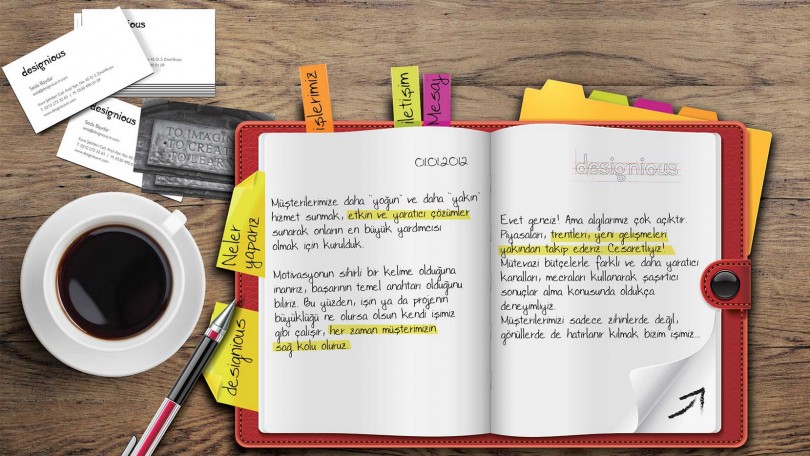 designious
designious
Seda Baydar
designious
Seda Baydar
TO IMAGIN
TO CREAT
TO LEARN
işlerimiz
iletişim
Mesaj
Neler
yaparız
designious
01.01.2012
Müşterilerimize daha "yoğun" ve daha "yakın"
hizmet sunmak, etkin ve yaratıcı çözümler
sunarak onların en büyük yardımcısı
olmak için kurulduk.
Motivasyonun sihirli bir kelime olduğuna
inanırız, başarının temel anahtarı olduğunu
biliriz. Bu yüzden, işin ya da projenin
büyüklüğü ne olursa olsun kendi işimiz
gibi çalışır, her zaman müşterimizin
sağ kolu oluruz.
designious
Evet genciz! Ama algılarımız çok açıktır.
Piyasaları, trentleri, yeni gelişmeleri
yakından takip ederiz. Cesaretliyiz!
Mütevazi bütçelerle farklı ve daha yaratıcı
kanalları, mecraları kullanarak şaşırtıcı
sonuçlar alma konusunda oldukça
deneyimliyiz.
Müşterilerimizi sadece zihinlerde değil,
gönüllerde de hatırlanır kılmak bizim işimiz...